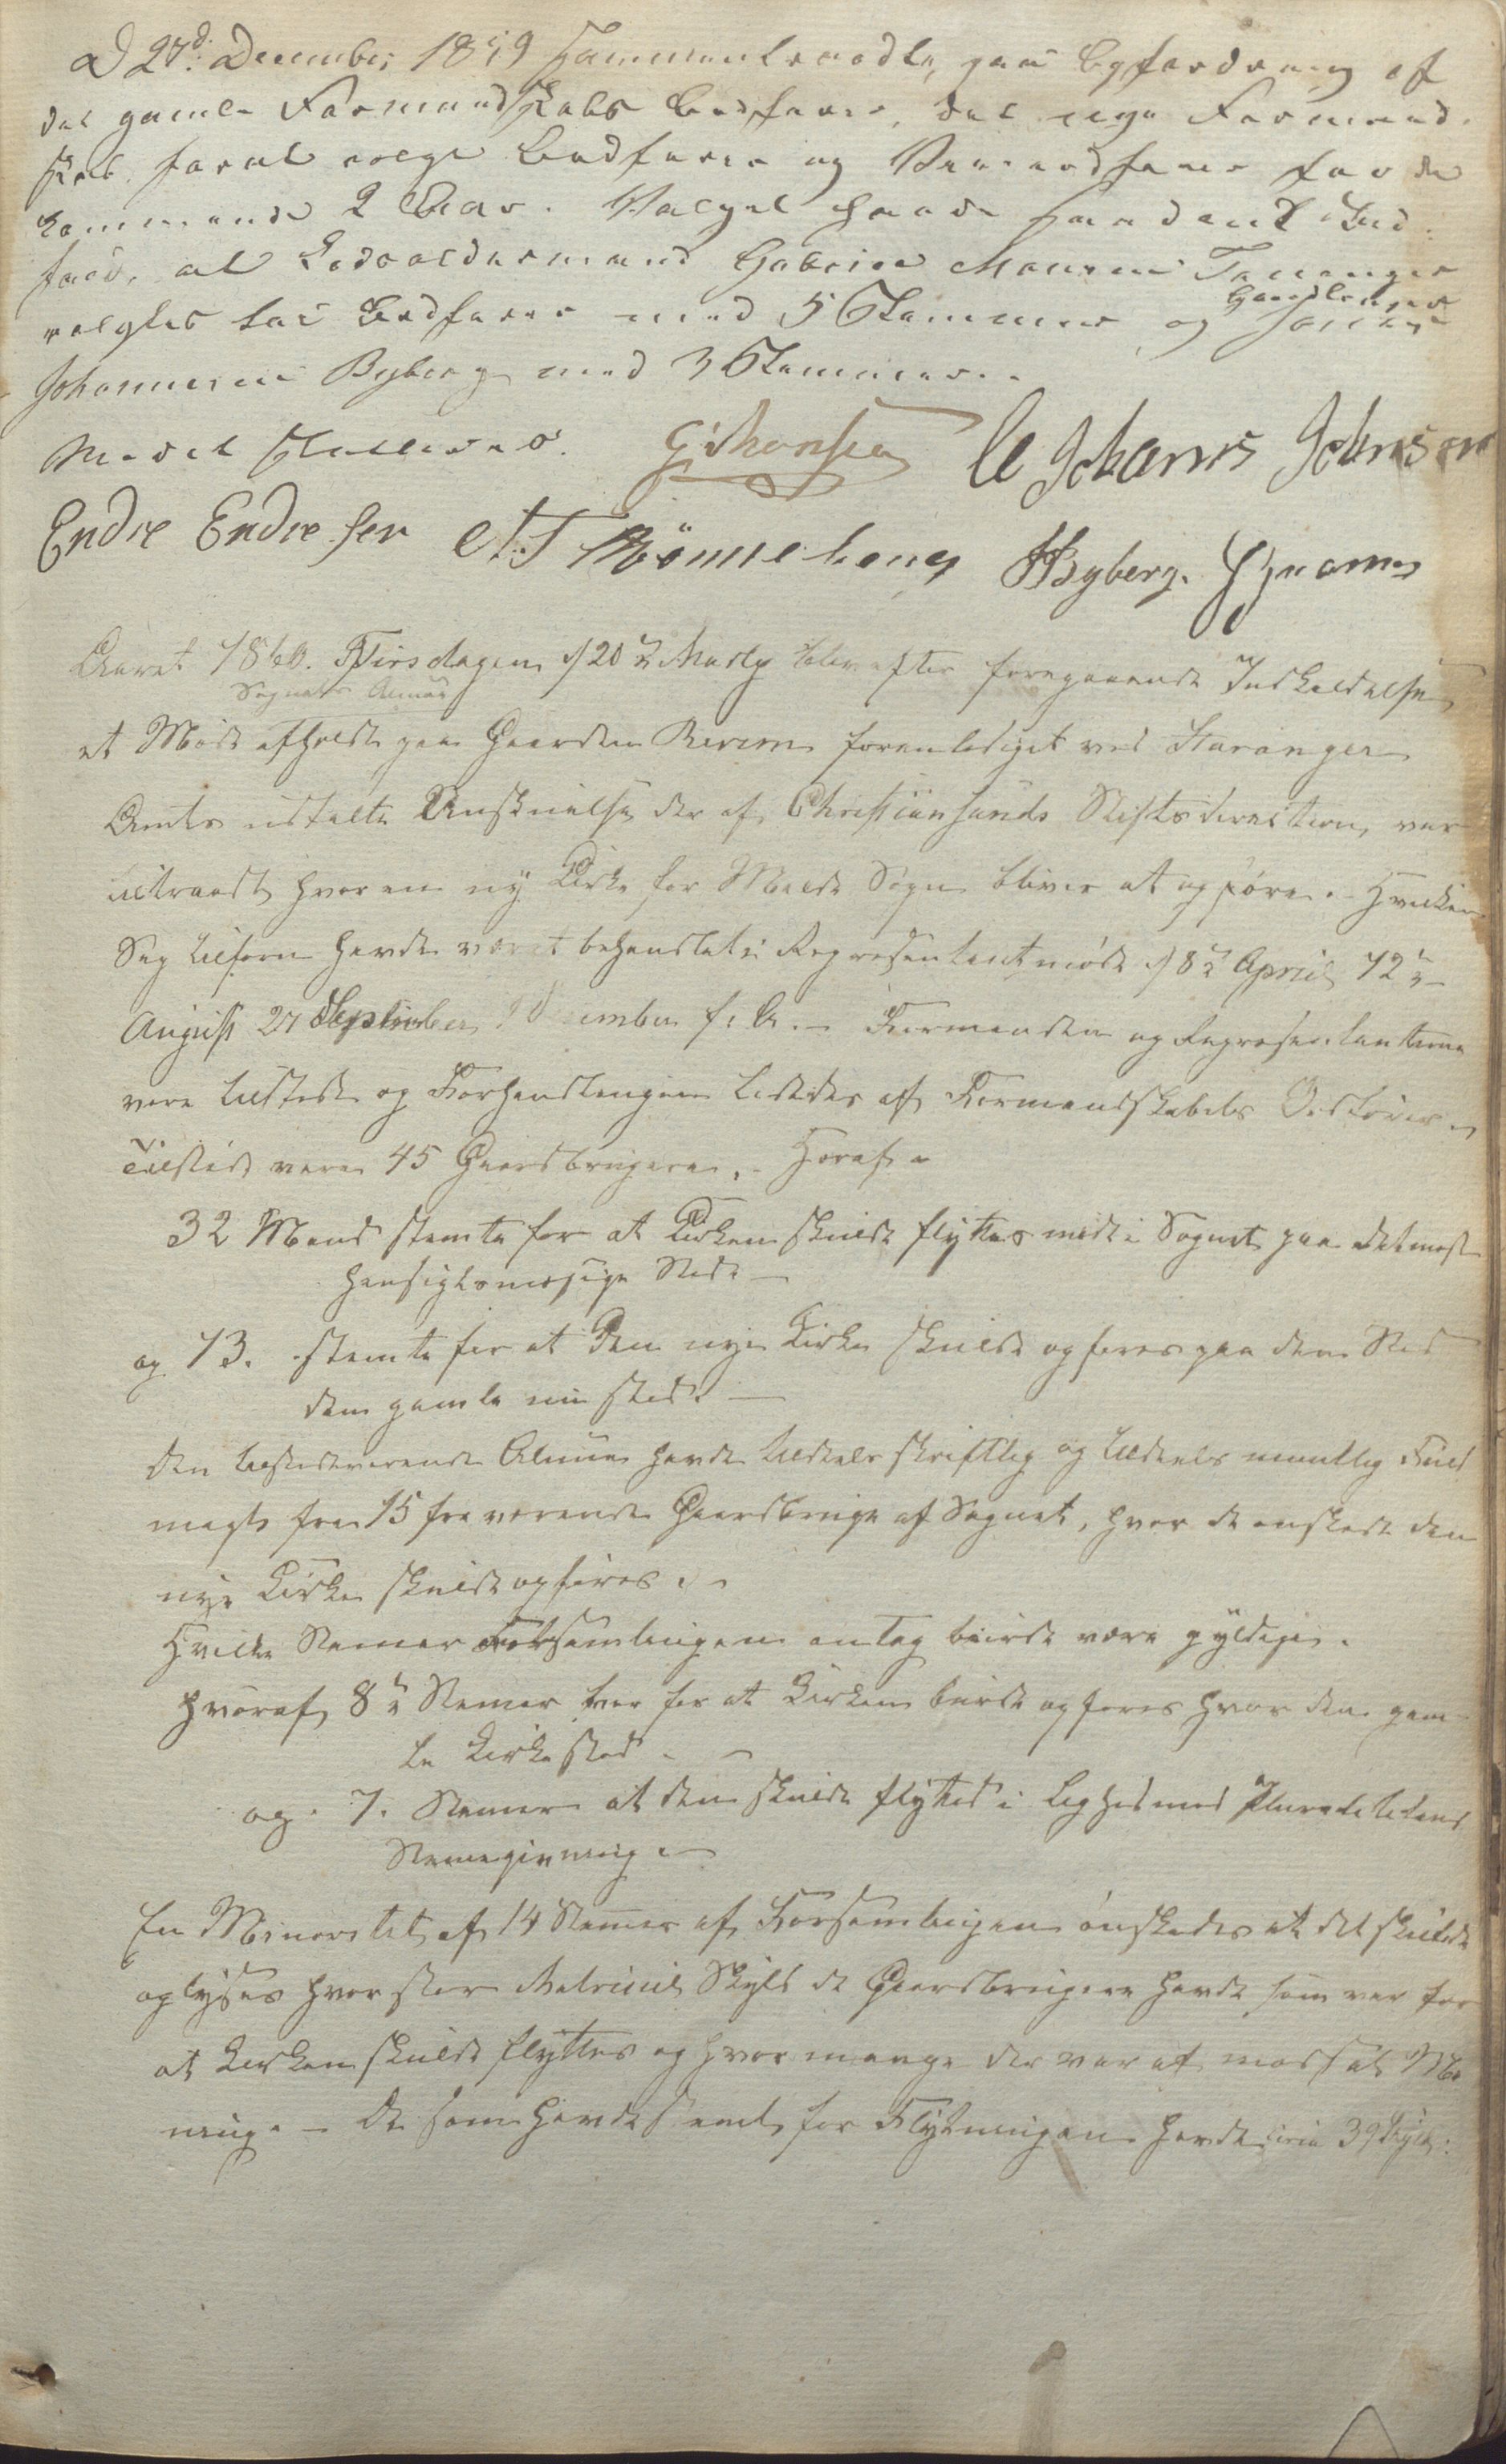 D 27d December 1859 Sammentraadte, paa Opfordring af
det gamle Formandskabs Ordfører, det nye Formand-
skab for at vælge Ordfører og Viceordfører for de
kommende 2 Aar. Valget havde saadant Ud-
fald, at Lodsoldermand Gabriel Monsen Tananger
valgtes til Ordfører med 5 Stemmer og Handlende
Johannesen Byberg med 3 Stemmer.
G Monsen Ole Johanis Johnsen
Endre Endresen Byberg.
Aaret 1860. Tirsdagen d 20de Marty blev efter foregaaende Indkaldelse
Sognets Almue
et Møde afholdt paa Gaarden Ræge foranlediget ved Stavanger
Amts udtalte Anskuelse der af Christiansands Stiftsdirection, var
tiltraadt, hvor en ny Kirke for Malde Sogn bliver at opføre. Hvilken
Sag tilforn havde været behandlet i Representantmøde d 8de April, 12te
August 27 September, December f. A. Formænden og Representanterne
vare tilstede og Forhandlingen lededes af Formandskabets Ordfører
Tilstede vare 45 Gaardbrugere. Heraf
32 Mand stemte for at Kirken skulde flyttes midt i Sognet paa det mest
hensigtsmæsige Sted
og 13. stemte for at den nye Kirke skulde opføres paa den Sted
den gamle nu stod.
den tilstedeværende Almue havde tildeels skriftlig og tildeels mundtlig Fuld
magt fra 15 fraværende Gaardbruge af Sognet, hvor de ønskede den
nye Kirke skulde opføres.
Hvilke Stemer Forsamlingen antog burde være gyldige.
hvoraf 8te Stemer var for at Kirken burde opføres hvor den gam-
le Kirke stod
og 7. Stemer at den skulde flyttes i Lighed med Pluralitetens
Stemegivning
En Minoritet af 14 Stemer af Forsamlingen ønskedes at det skulde
oplyses hvor stor Matricul Skyld de Gaardbrugere havde som var for
at Kirken skulde flyttes og hvor mange der var af modsat Me
ning. De som havde stemt for Flytningen havde circa 39 Skyld.